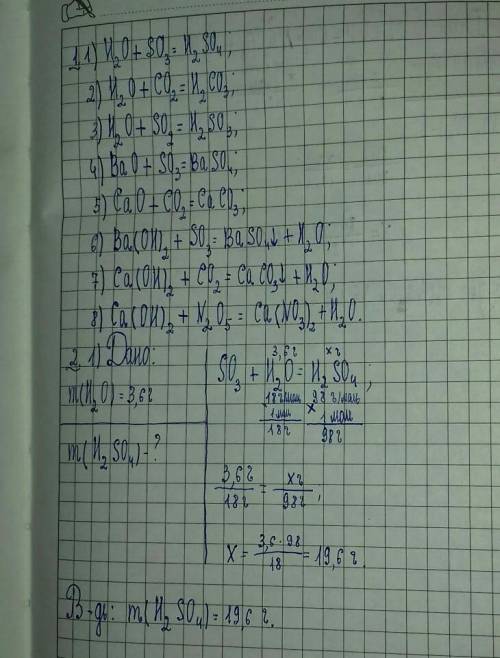 1.1) H₂O + SO₃ = H₂SO₄;
2) H₂O + CO₂ = H₂CO₃;
3) H₂O + SO₂ = H₂SO₃;
4) BaO + SO₃ = BaSO₄;
5) CaO + CO₂ = CaCO₃;
6) Ba(OH)₂ + SO₃ = BaSO₄↓ + H₂O;
7) Ca(OH)₂ + CO₂ = CaCO₃↓ + H₂O;
8) Ca(OH)₂ + N₂O₅ = Ca(NO₃)₂ + H₂O.
2.1) Дано:
m(H₂O) = 3,6 г
m(H₂SO₄) - ?
3,6 г x г
SO₃ + H₂O = H₂SO₄;
18 г/моль 98 г/моль
x 1 моль x 1 моль
18 г 98 г
3,6 г / 18 г = x г / 98 г;
x = 3,6 · 98 / 18 = 19,6 г.
В-дь: m(H₂SO₄) = 19,6 г.